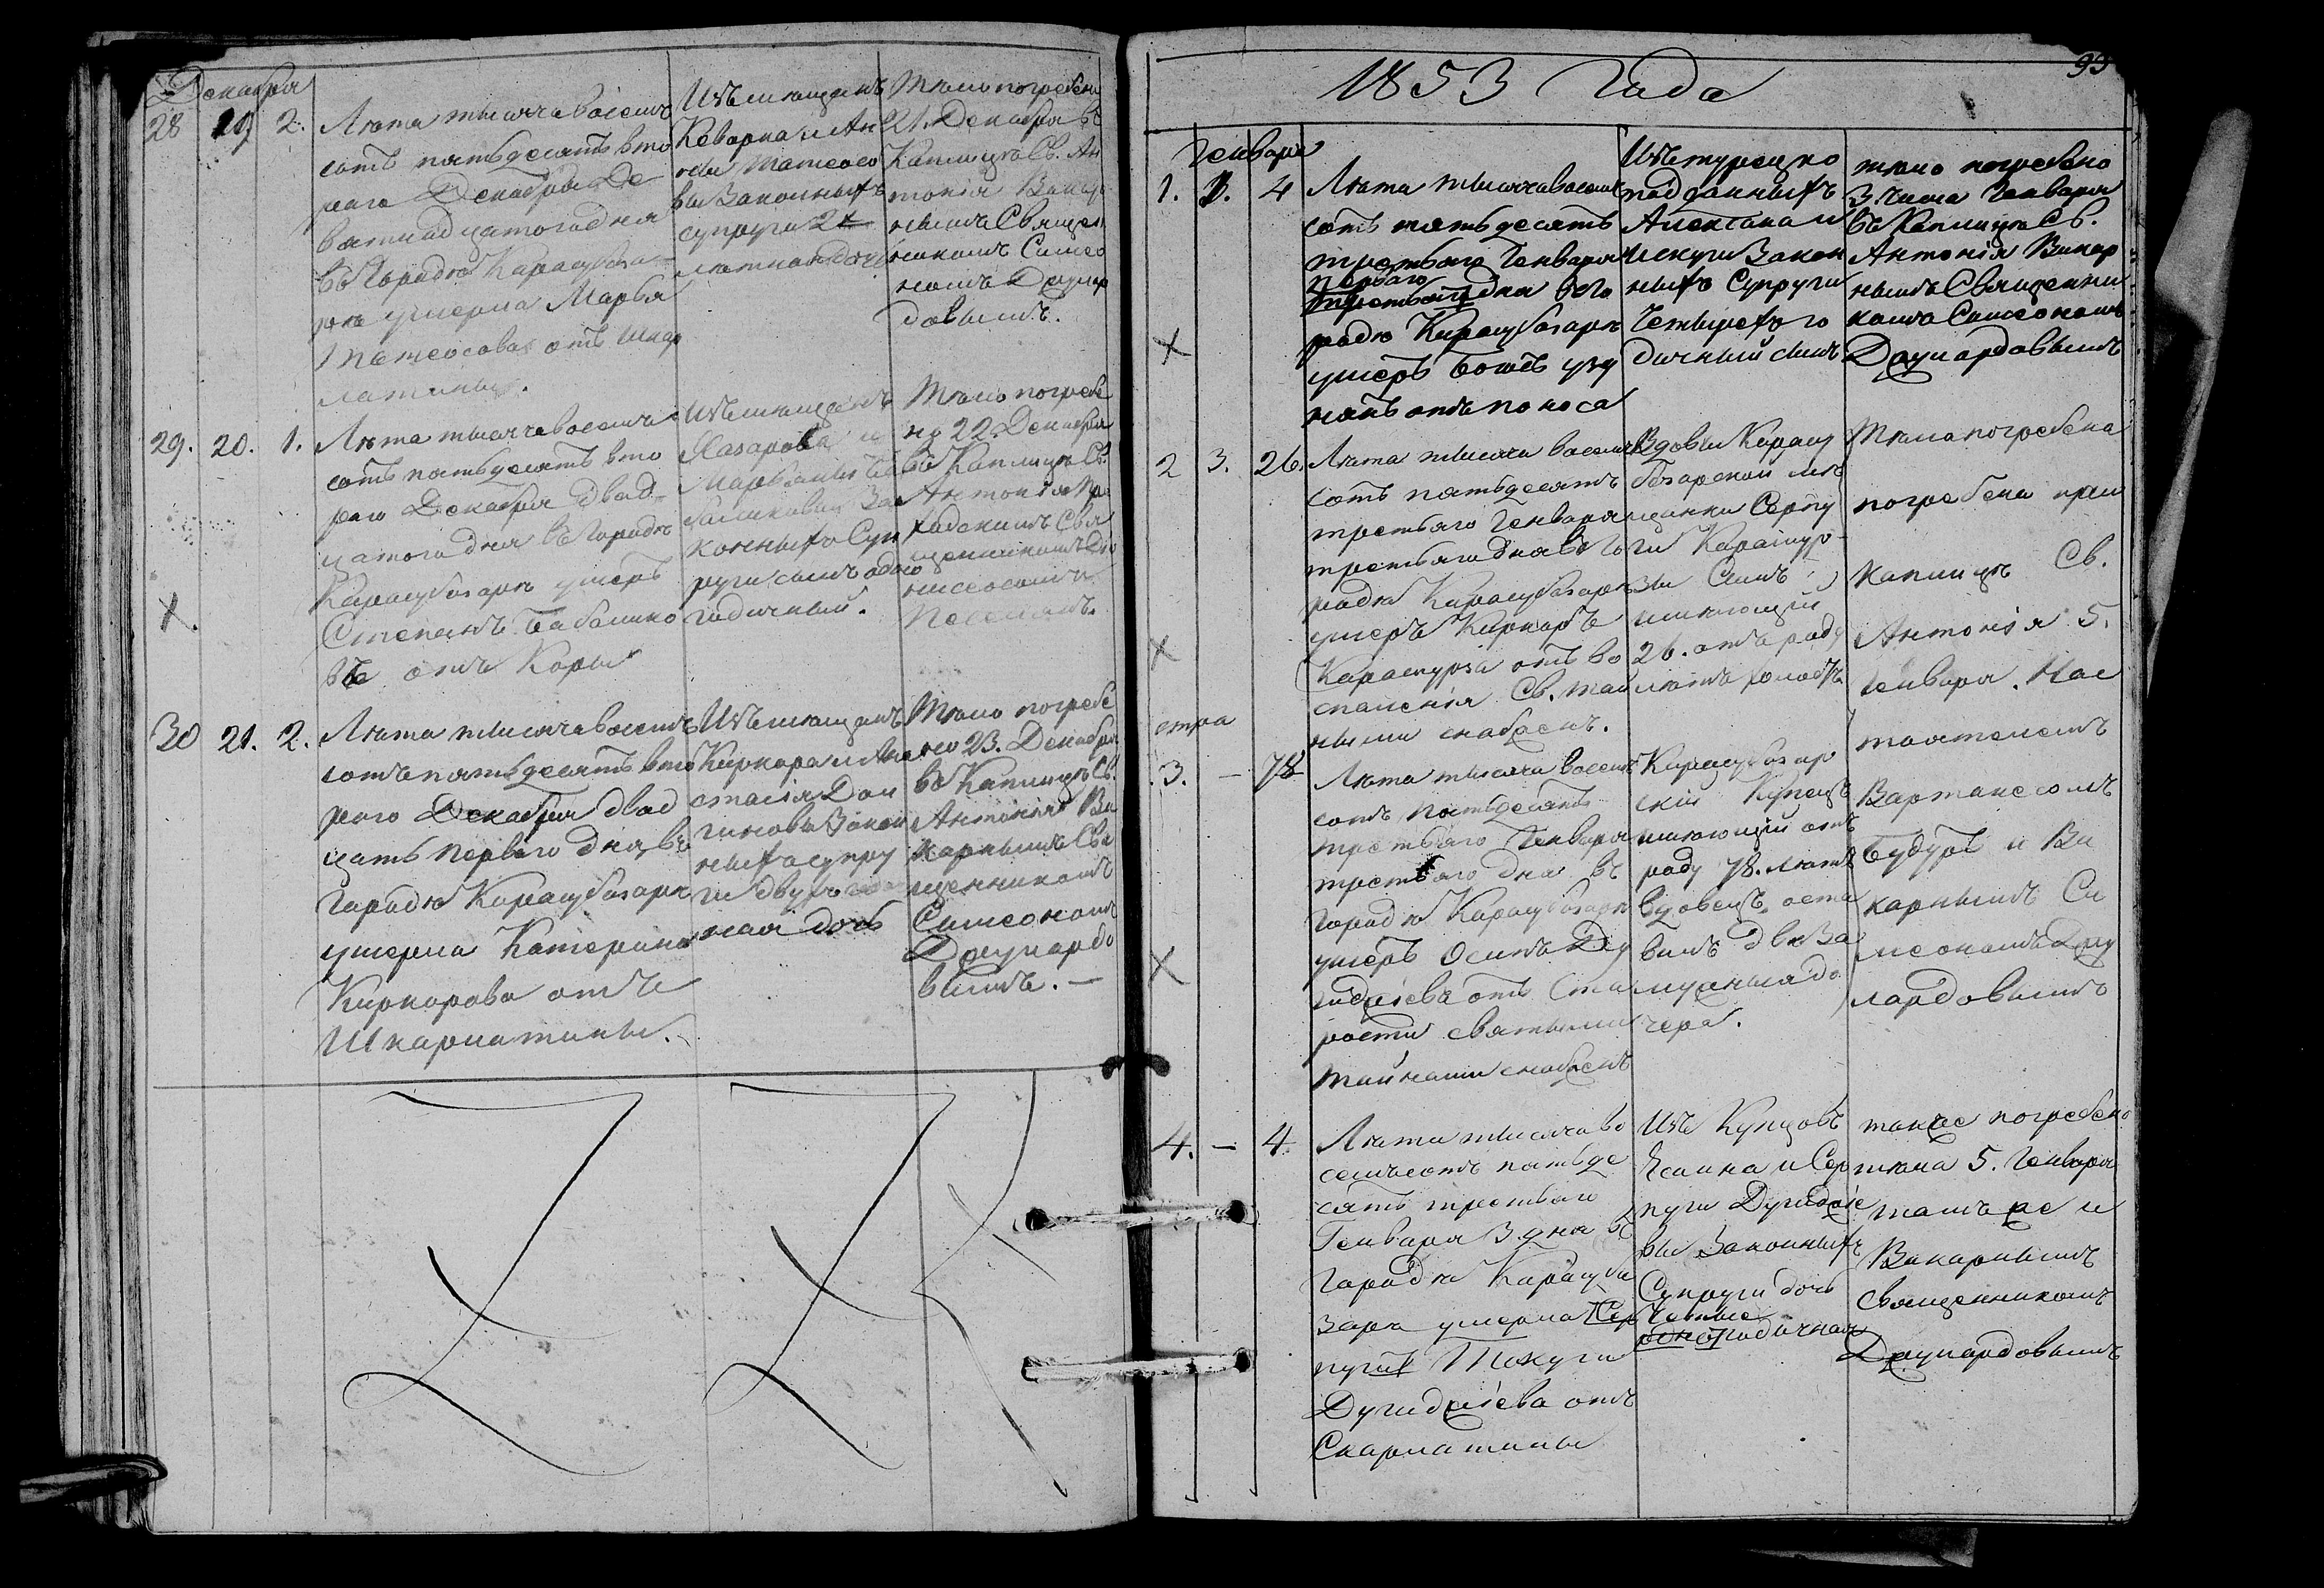 Декабря
28 19 2.
Лѣта тысяча восемь
сотъ пятьдесятъ вто
раго Декабря де
вятнадцатого дня
въ Городѣ Карасубаза
рѣ умерла Марья
Татеосова отъ шкар
латины.
Изъ мещанъ
Кеворка и Ан
ны Татеосо
вы Законныхъ
супруги 2х
лѣтная дочь
Тѣло погребено
21. Декабря въ
Каплицѣ Св. Ан
тонія Викар
нымъ Священ
никомъ Симео
номъ
довымъ.
29. 20. 1.
Лѣта тысяча восемь
сотъ пятьдесятъ вто
раго Декабря двад
цатого дня въ Городѣ
Карасубазарѣ умеръ
Степанъ Бабалико
въ отъ Коры
Изъ мещанъ
Лазарова и
законныхъ Суп
руги сынъ одно
годичный.
Тѣло погребе
но 22. Декабря
въ Каплицѣ Св.
Антонія При
ходскимъ Свя
щенникомъ
Х.
30 21. 2.
Лѣта тысяча восемь
сотъ пятьдесятъ вто
раго Декабря двад
цать перваго дня въ
Городѣ Карасубазарѣ
умерла Катерина
Киркорова отъ
Шкарлатины.
Изъ мещанъ
Киркора и Ана
стасія
законныхъ супру
ги двухъ
ная дочь
Тѣло погребе
но 23. Декабря
въ Каплицѣ Св.
Антонія Ви
карнымъ Свя
щенникомъ
Симеономъ
вымъ. —
99
1853 Года
Генваря
1. 1. 4
Лѣта тысяча восемь
сотъ пятьдесятъ
третьяго Генваря
перваго
третьяго дня въ Го
родѣ Карасубазарѣ
умеръ Богосъ Узу
нянъ отъ поноса
Изъ турецко
подданныхъ
Алексана и
Искуги Закон
ныхъ Супруги
Четырехъ го
дичный сынъ
тѣло погребено
3 числа Генваря
въ Каплицѣ Св.
Антонія Викар
нымъ Священни
комъ Симеономъ
Х
2 3. 26.
Лѣта тысяча восемь
сотъ пятьдесятъ
третьяго Генваря
третьяго дня въ Го
родѣ Карасубазарѣ
умеръ Киркоръ
Карамурза отъ во
спаленія Св. тай
ными снабденъ.
Вдовы Карасу
базарской мѣ
щанки Серпу
ги Карамур
зы Сынъ
имѣющій
26. отъ роду
лѣтъ холостъ
Тѣло погребена
погребена при
Каплицѣ Св.
Антонія 5.
Генваря. Нас
тоятелемъ
Вартанесомъ
Будуръ и Ви
карнымъ Си
меономъ
лардовымъ
Х
стра
3. — 78
Лѣта тысяча восемь
сотъ пятьдесятъ
третьяго Генваря
третьяго дня въ
Городѣ Карасубазарѣ
умеръ Осипъ Ду
гидаіевъ отъ Ста
рости святыми
тайнами снабденъ
Карасубазар
скій Купецъ
имѣющій отъ
роду 78. лѣтъ
вдовецъ оста
вилъ двѣ За
мужныя до
чера.
Х
4. — 4
Лѣта тысяча во
семьсотъ пятьде
сятъ третьяго
Генваря 3 дня въ
Городѣ Карасуба
зарѣ умерла Сер
пуги Такуги
Дугидаіева отъ
Скарлатины
Изъ Купцовъ
и Сер
пуги Дугидаіе
вы Законныхъ
Супруги дочь
Четыре
годичная
также погребено
тѣла 5. Генваря
тамъ же и
Викарнымъ
Священникомъ